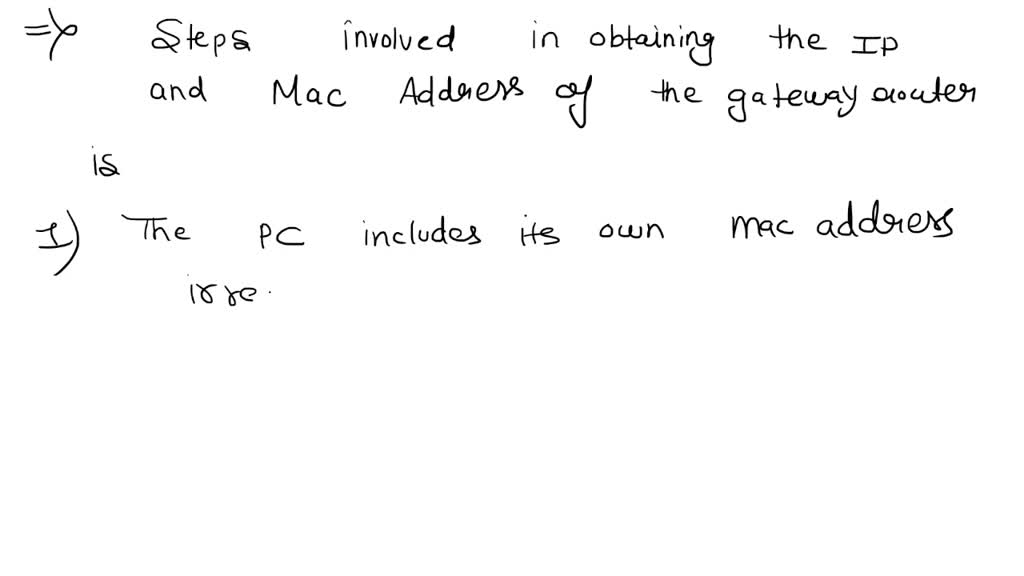 => Steps involved in obtaining the IP
and Mac Address of the gateway router
is
I) The PC includes its own mac address
irre.